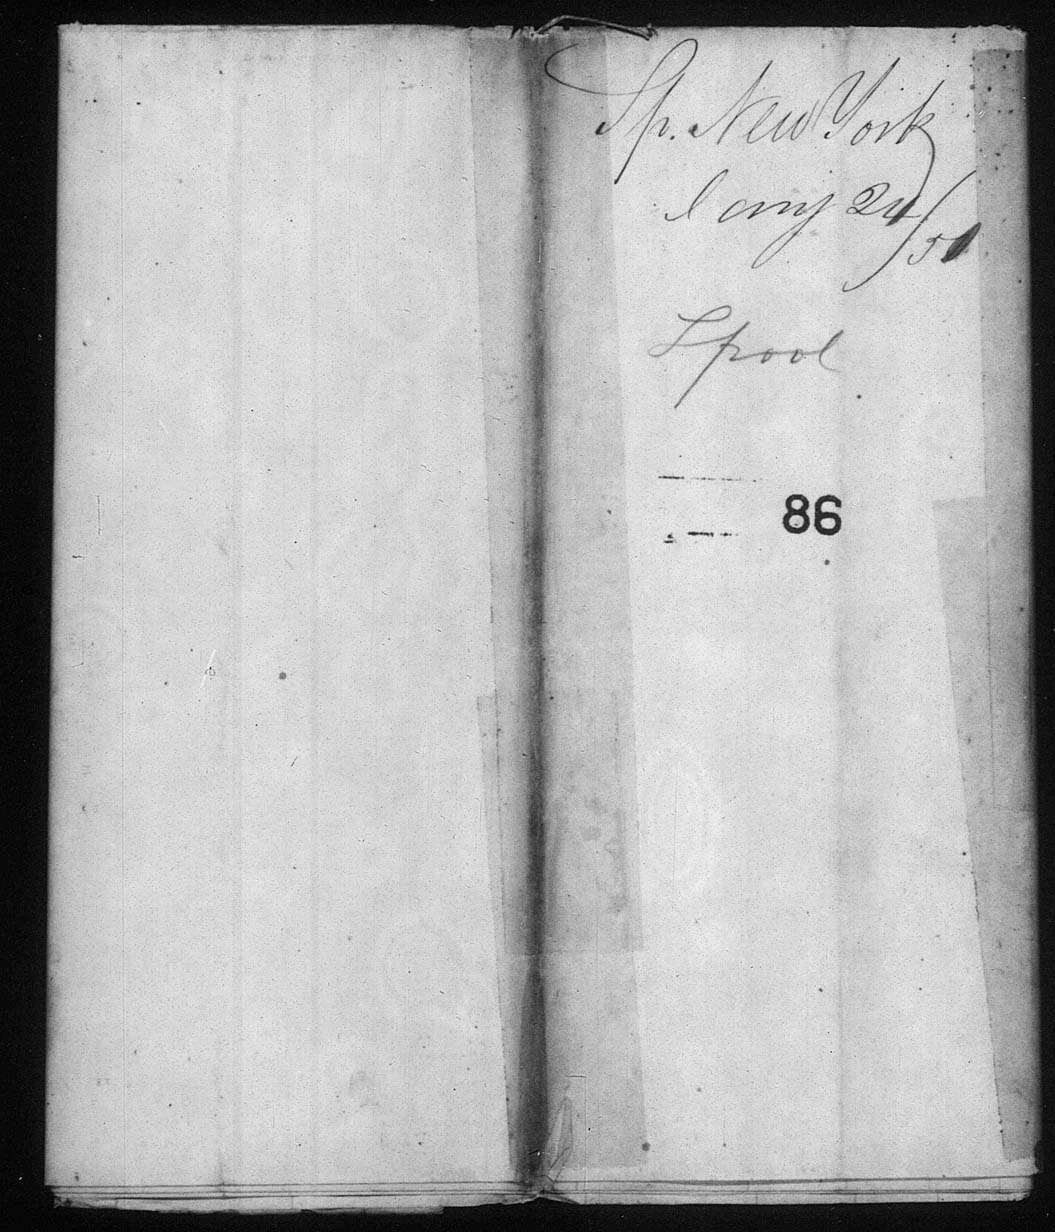 Sp. New York
Jany 24/51
Lpool
86